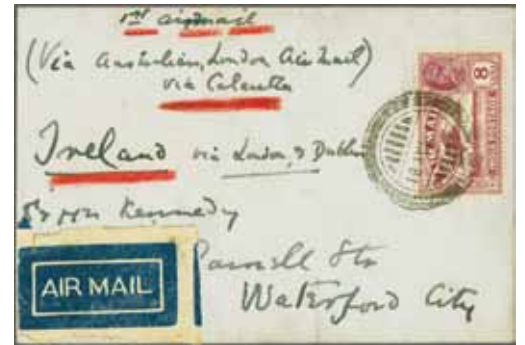 1st airmail
(Via Australian, London Air Mail)
via Calcutta
Ireland via London, & Dublin
Kennedy
Parnell Str
Waterford City
AIR MAIL
8
AIR MAIL